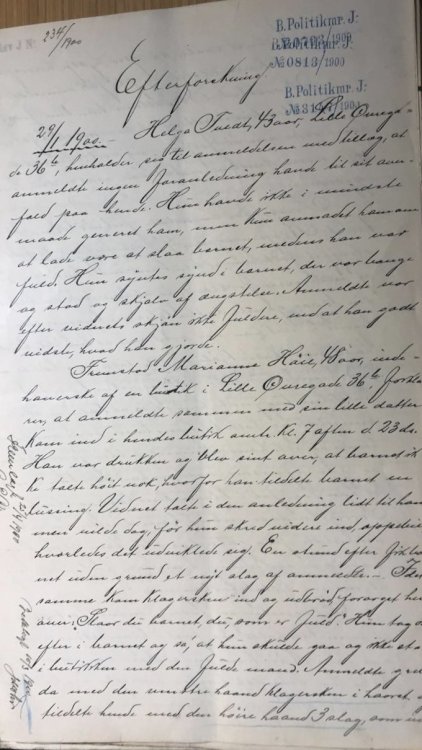 234/1900
B. Politikmr. J:
№ 0813/1900
B. Politikmr. J:
Efterforskning
29/1 1900. Helga Tvedt, 43 aar, Lille Øvrega-
de 36b, henholder sig til anmeldelsen med tillæg, at
anmeldte ingen foranledning havde til sit over-
fald paa hende. Hun havde ikke i mindste
maade generet ham, men kun anmodet ham om
at lade være at slaa barnet, medens han var
fuld. Hun syntes synd i barnet, der var bange
og stod og skjalv af ængstelse. Anmeldte var
efter vidnets skjøn ikke fuldere, end at han godt
vidste, hvad han gjorde.
Marianne Høie, 48 aar, inde-
haverske af en butik i Lille Øvregade 36b. Forkla-
rer, at anmeldte sammen med sin lille datter
kom ind i hendes butik omtr. kl. 7 aften d. 23 ds.
Han var drukken og blev sint over, at barnet ik-
ke talte høit nok, hvorfor han tildelte barnet en
lussing. Vidnet talte i den anledning lidt til ham
men vilde dog, før hun skred videre ind, oppebie
hvorledes det udviklede sig. En stund efter fik bar
net uden grund et nyt slag af anmeldte. I det
samme kom klagersken ind og udbrød, forarget her
over: Slaar du barnet, du, som er fuld. Hun tog der
efter i barnet og sa, at hun skulde gaa og ikke sta
i butikken med den fulde mand. Anmeldte greb
da med den venstre haand klagersken i haaret og
tildelte hende med den høire haand 3 slag, som